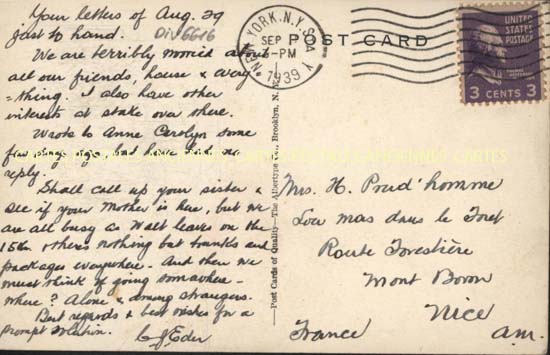 Your letters of Aug. 29
just to hand.
DIV6616
We are terribly worried about
all our friends, house & every
=thing. I also have other
interests at stake over there.
Wrote to Anne Carolyn some
days ago, but have had no
reply.
Shall call up your sister &
see if your Mother is here, but we
are all busy as Walt leaves on the
15th & there's nothing but trunks and
packages everywhere. And then we
must think of going somewhere -
where? Alone & among strangers.
Best regards & best wishes for a
prompt solution.
NEW YORK, N.Y. STA. Y
SEP
7-PM
1939
POST CARD
UNITED
STATES
POSTAGE
3 CENTS 3
Post Cards of Quality. — The Albertype Co., Brooklyn, N. Y.
CARTES POSTALES ANCIENNES CARTES
Mrs. H. Prud'homme
Lou mas dans le Foret
Route Forestière
Mont Boron
Nice
France
a.m.